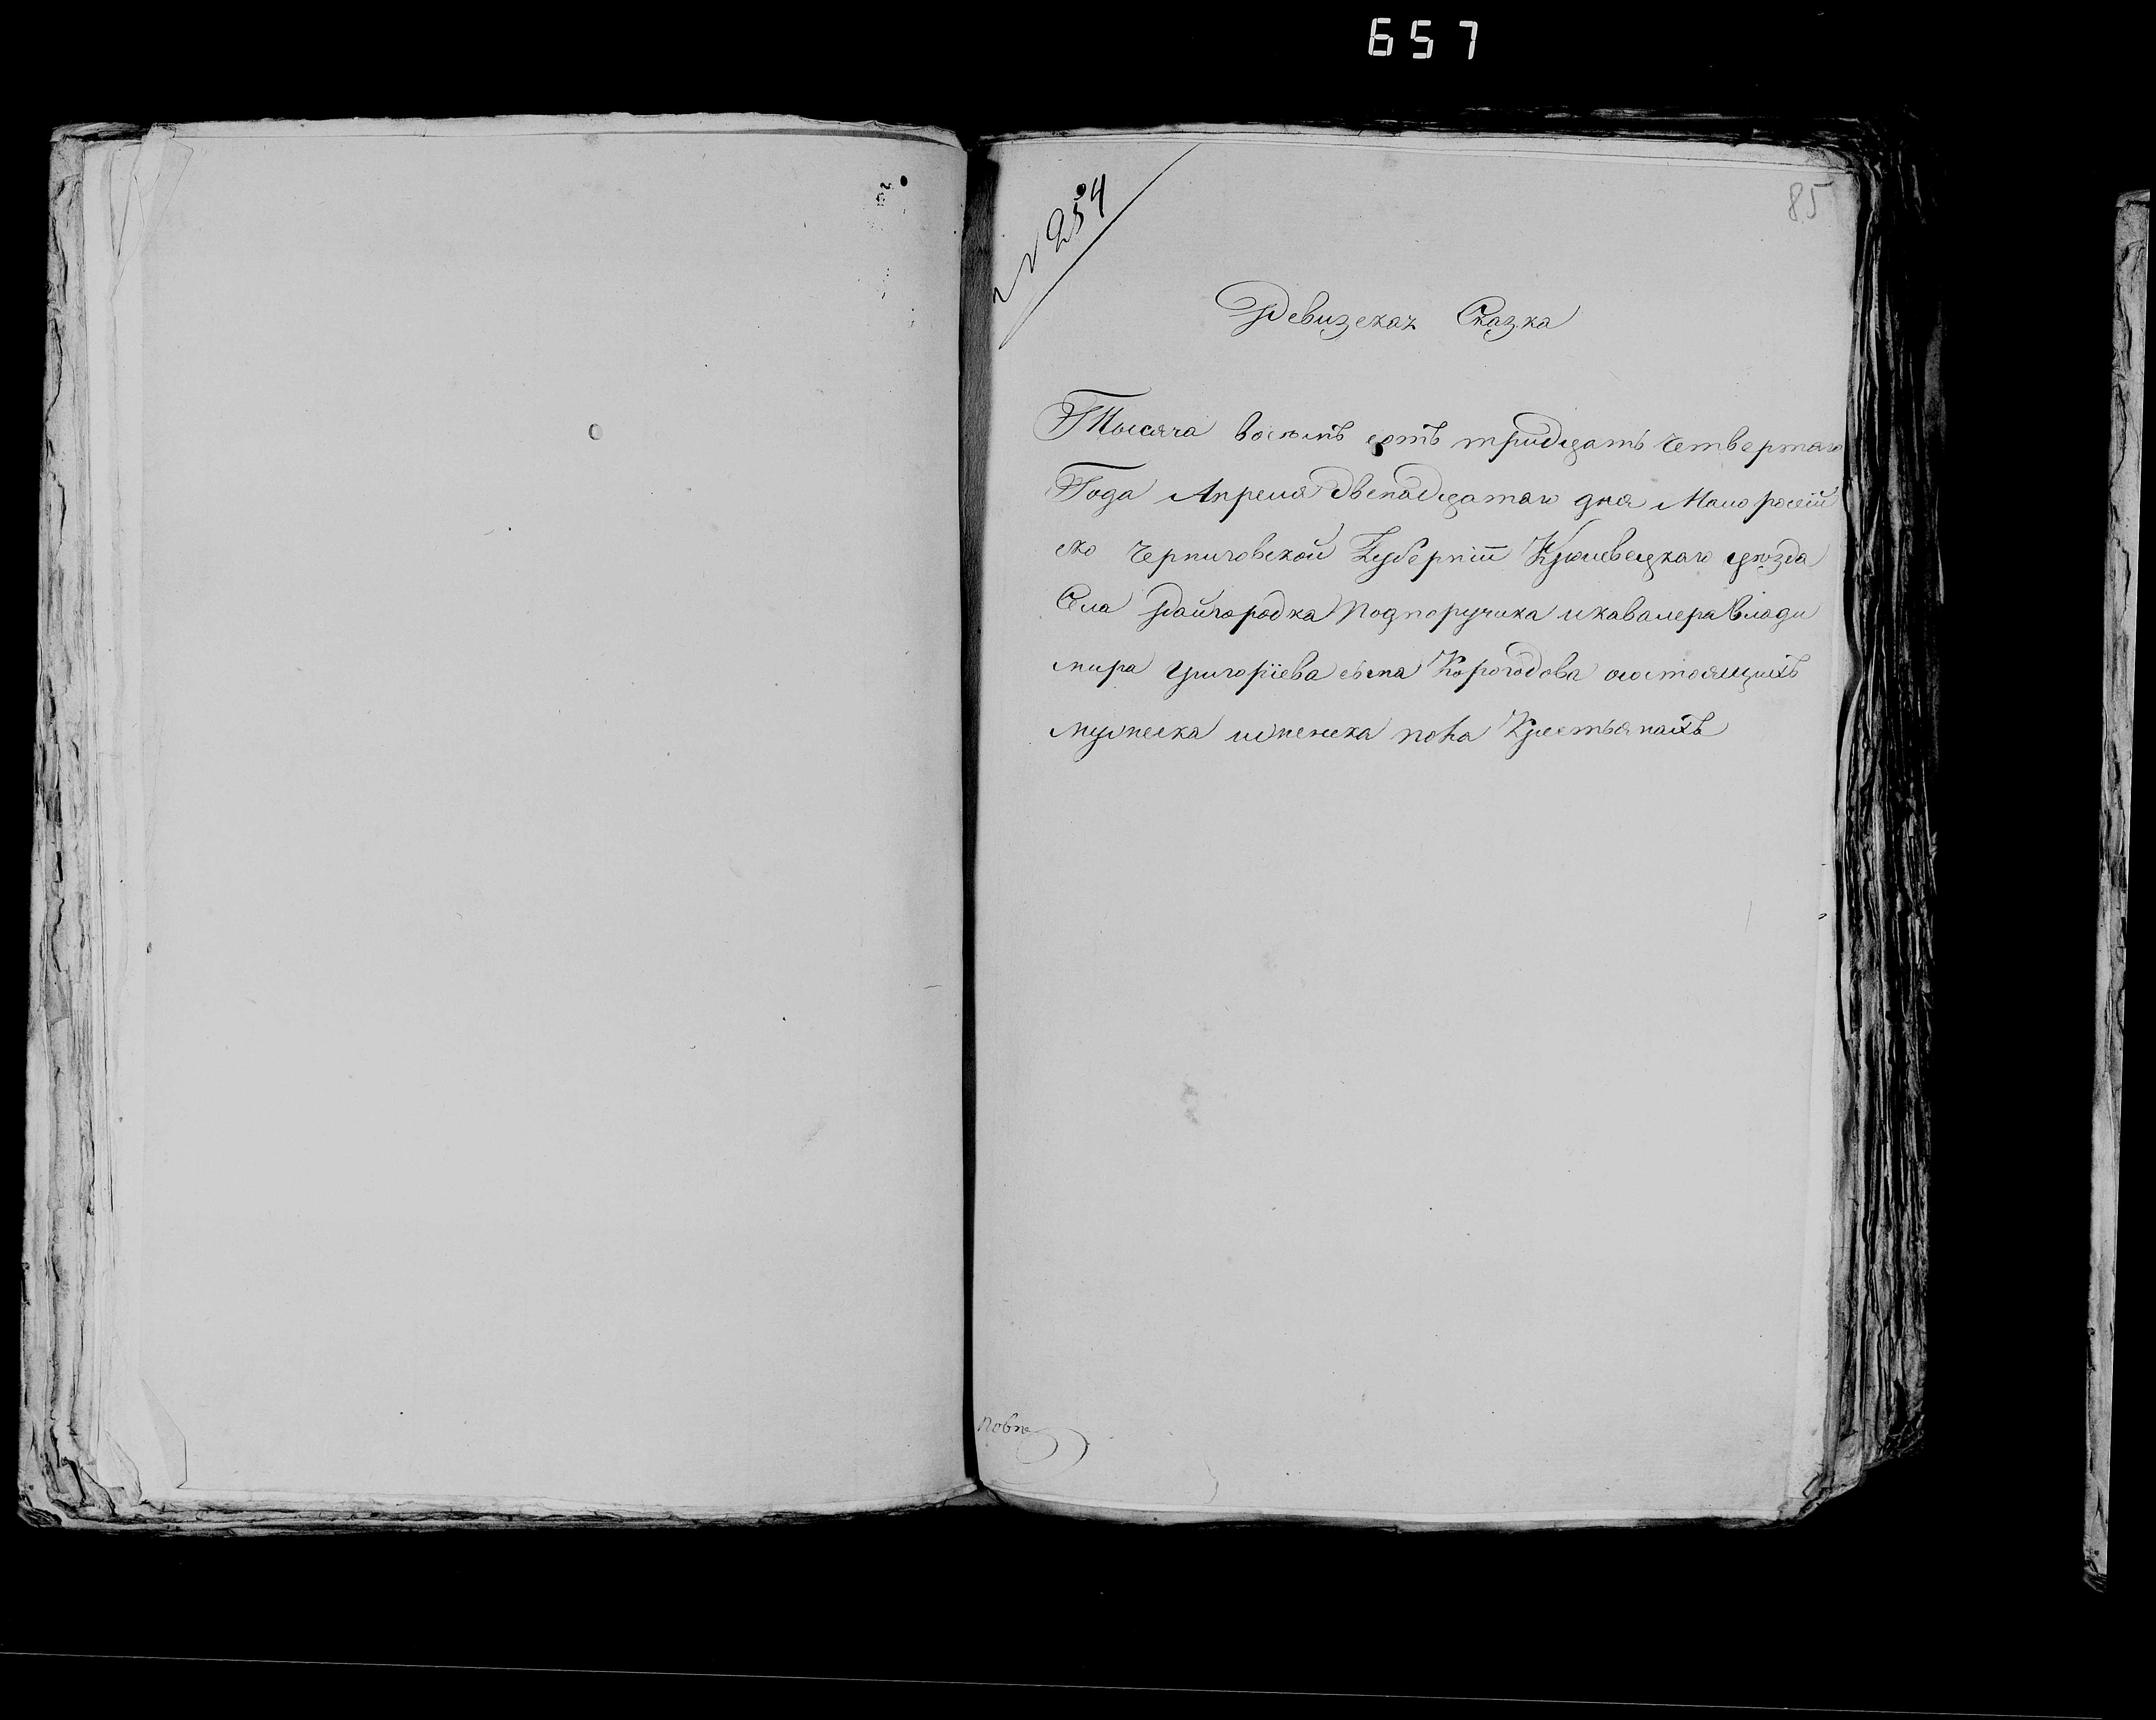 657
85
№ 254
Ревизскаѧ Сказка
Тысяча восемъ сотъ тридцать четвертаго
Года Апреля двенадцатаго дня Малоросій
ско Черниговской Губерніи Кролевецкаго уезда
Села Райгородка Подпоручика и кавалера Влади
мира Григоріева сына Корогодова состоящихъ
мужеска и женска пола Крестьянахъ